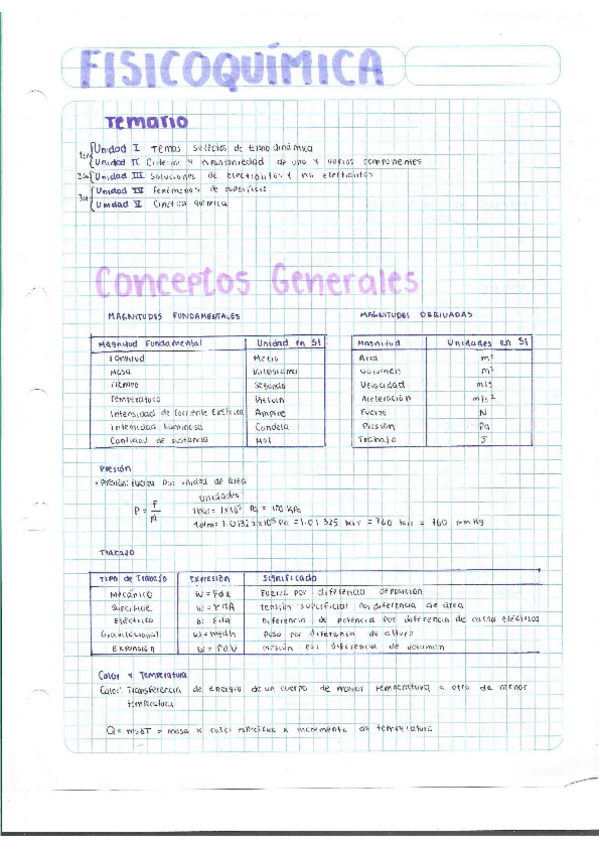 FISICOQUÍMICA
Temario
1er Unidad I Temas selectos de termodinámica
Unidad II Criterios y espontaneidad de uno y varios componentes
2do Unidad III Soluciones de electrolitos y no electrolitos
3er Unidad IV Fenómenos de superficie
Unidad V Cinética química
Conceptos Generales
MAGNITUDES FUNDAMENTALES
MAGNITUDES DERIVADAS
Magnitud Fundamental Unidad en SI
Longitud Metro
Masa Kilogramo
Tiempo Segundo
Temperatura Kelvin
Intensidad de Corriente Eléctrica Ampere
Intensidad Luminosa Candela
Cantidad de sustancia Mol
Magnitud Unidades en SI
Área m²
Volumen m³
Velocidad m/s
Aceleración m/s²
Fuerza N
Presión Pa
Trabajo J
PRESIÓN
Presión: Fuerza por unidad de área
Unidades:
P = F/A
1 bar = 1x10⁵ Pa = 100 KPa
1 atm = 1.01325x10⁵ Pa = 1.01325 bar = 760 torr = 760 mm Hg
TRABAJO
Tipo de Trabajo Expresión Significado
Mecánico Fuerza por diferencia de posición
Superficie Tensión superficial por diferencia de área
Eléctrico Diferencia de potencia por diferencia de carga eléctrica
Gravitacional Peso por diferencia de altura
Expansión Presión por diferencia de volumen
Calor y Temperatura
Calor: Transferencia de energía de un cuerpo de mayor temperatura a otro de menor
temperatura
= masa x calor específico x incremento de temperatura